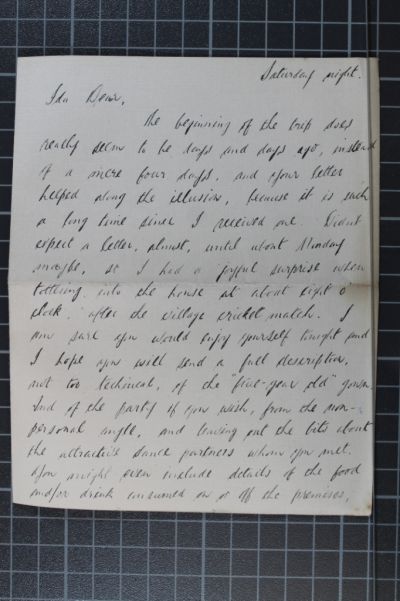 Saturday night.
Ida Dear,
The beginning of the trip does
really seem to be days and days ago, instead
of a mere four days, and your letter
helped along the illusion, because it is such
a long time since I received one. Didn't
expect a letter, almost, until about Monday
maybe, so I had a joyful surprise when
tottering into the house at about eight o'
clock, after the village cricket match. I
am sure you would enjoy yourself tonight and
I hope you will send a full description,
not too technical, of the "five-year old" gown.
And of the party if you wish, from the non-
personal angle, and leaving out the bits about
the attractive dance partners whom you met.
You might even include details of the food
and/or drink consumed on or off the premises,